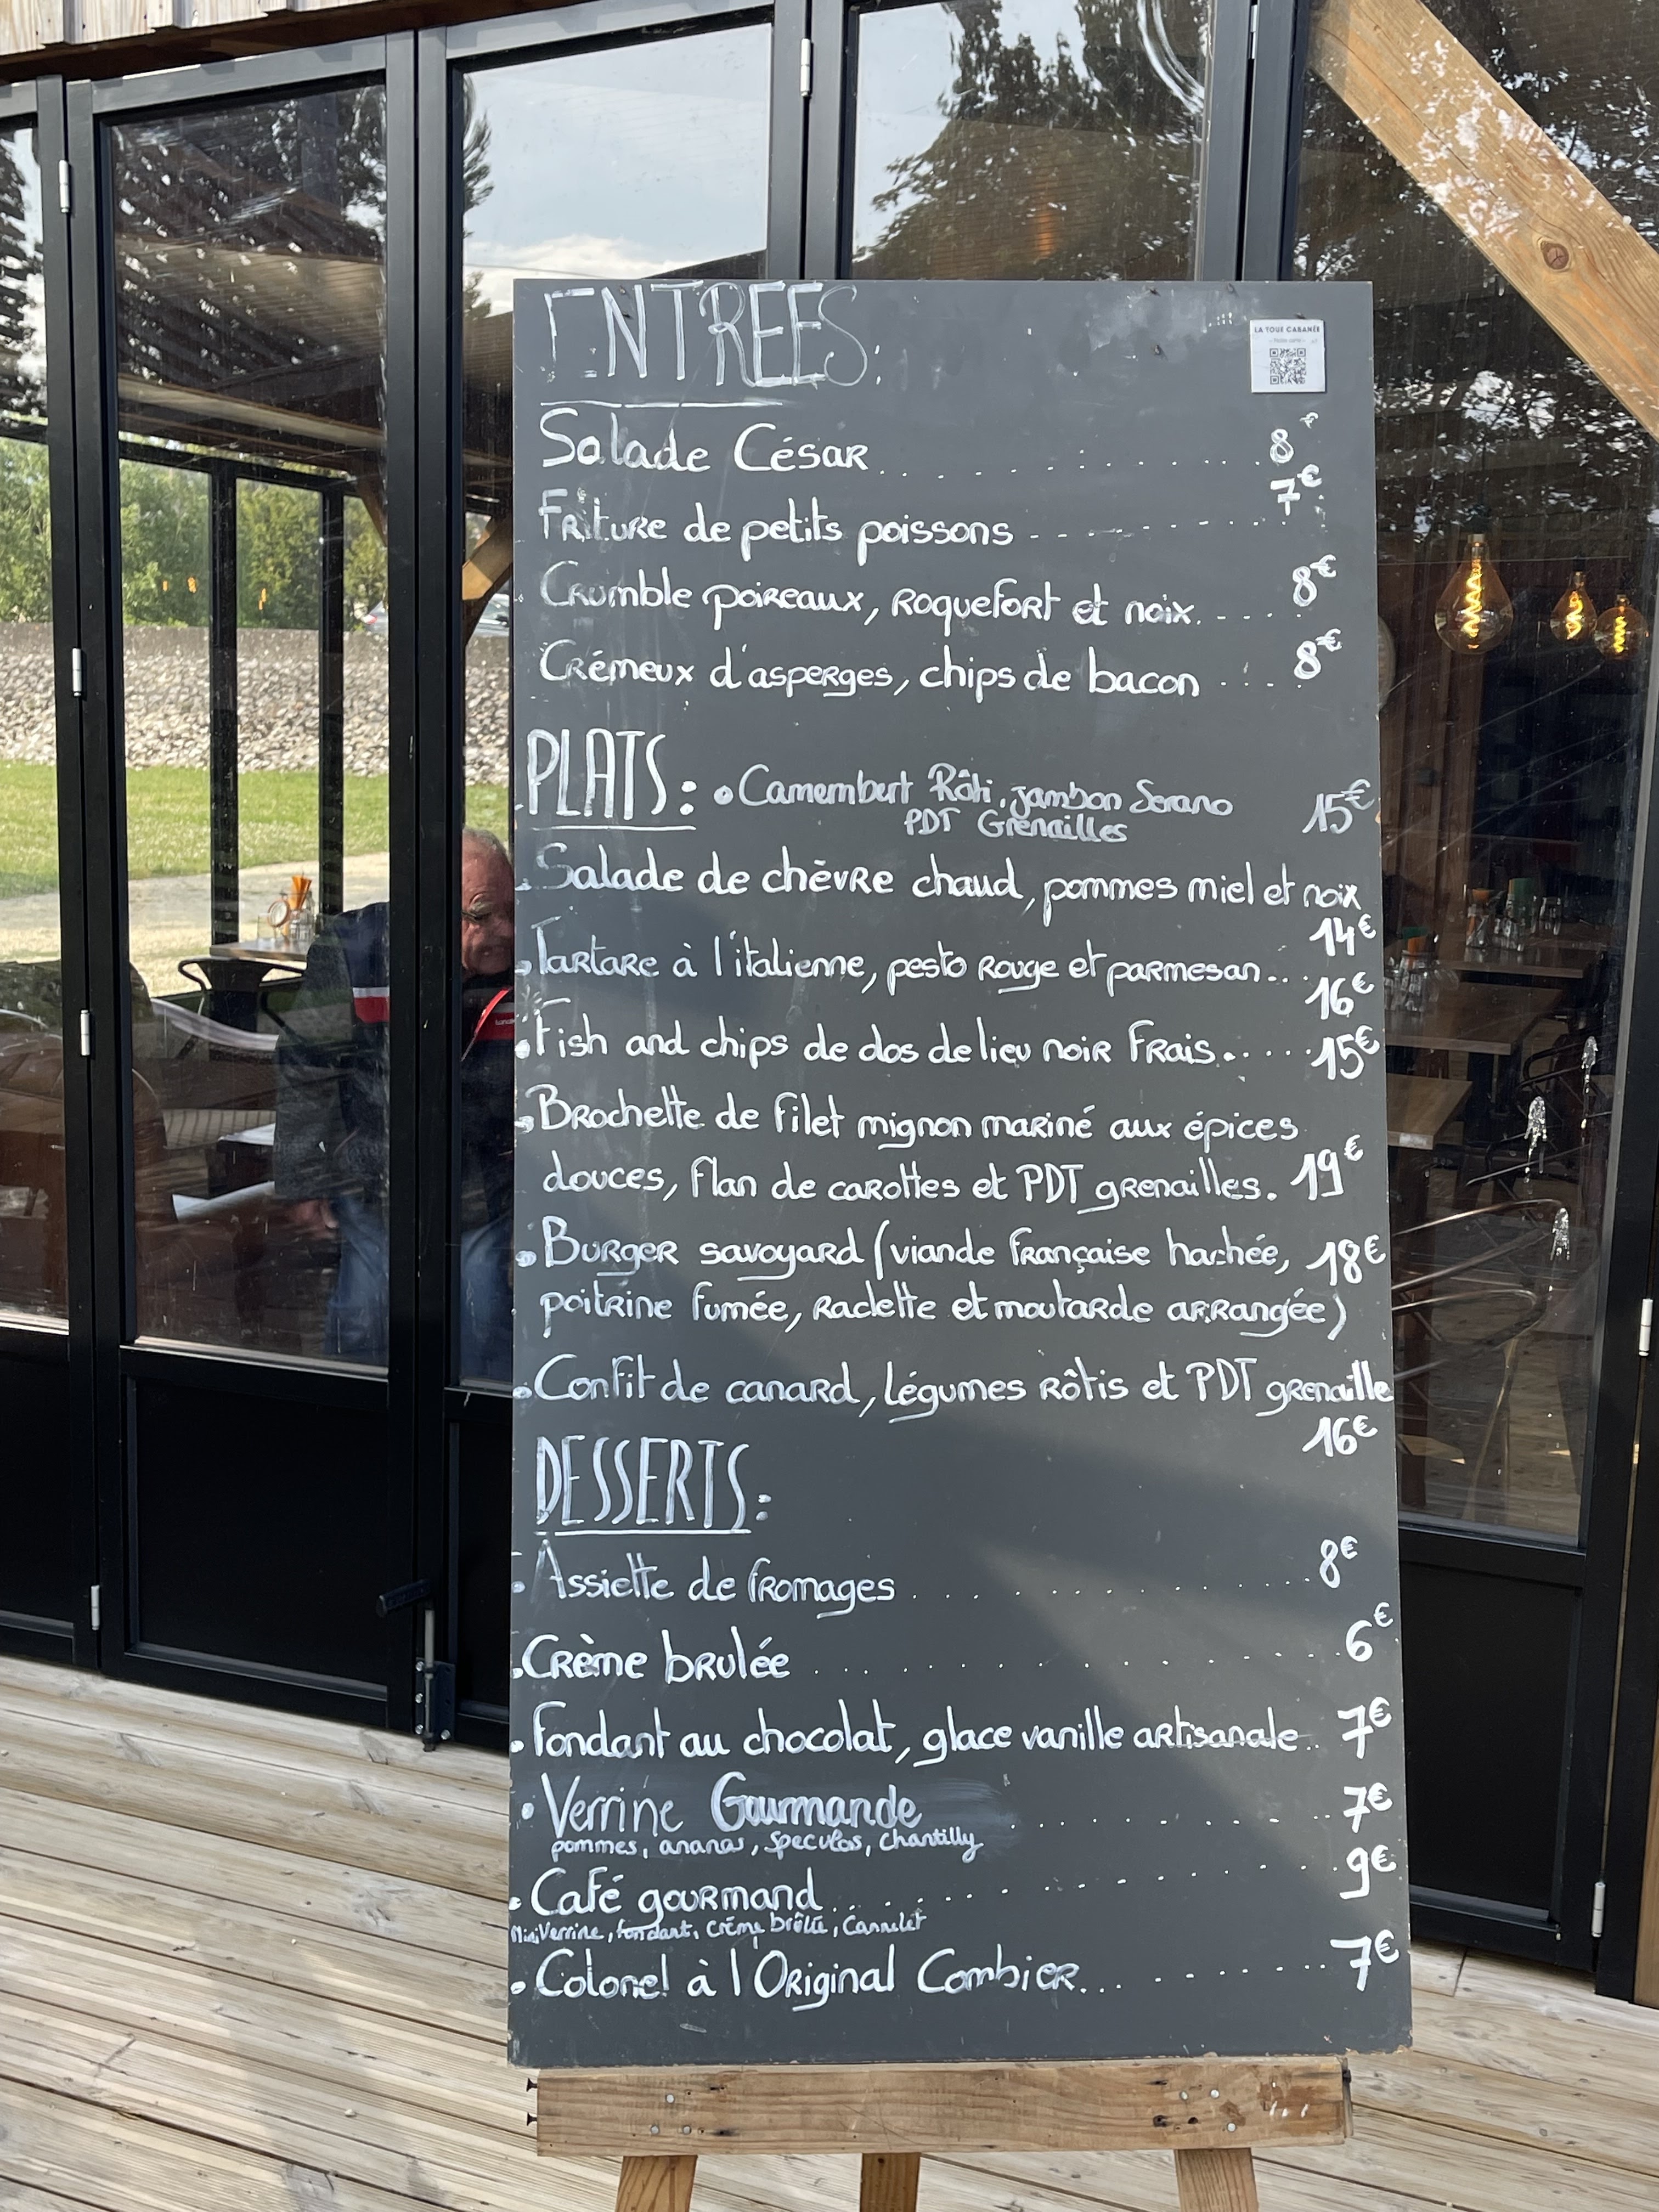 ENTREES:
LA TOUE CABANÉE
Salade César . . . . . . . . . 8€
Friture de petits poissons - - - - - - - 7€
Crumble poireaux, roquefort et noix. - - - 8€
Crémeux d'asperges, chips de bacon . . . 8€
PLATS: • Camembert Rôti, jambon Serano 15€
PDT Grenailles
• Salade de chèvre chaud, pommes miel et noix
14€
• Tartare à l'italienne, pesto rouge et parmesan... 16€
• Fish and chips de dos de lieu noir frais..... 15€
• Brochette de filet mignon mariné aux épices
douces, flan de carottes et PDT grenailles. 19€
• Burger savoyard (viande française hachée, 18€
poitrine fumée, raclette et moutarde arrangée)
• Confit de canard, légumes rôtis et PDT grenaille
16€
DESSERTS:
• Assiette de fromages . . . . . . . . . 8€
• Crème brulée . . . . . . . . . . . 6€
• Fondant au chocolat, glace vanille artisanale.. 7€
• Verrine Gourmande . . . . . . . . 7€
pommes, ananas, speculos, chantilly
• Café gourmand . . . . . . . . . 9€
Mini Verrine, fondant, crème brûlée, Cannelet
• Colonel à l'Original Combier. . . . . . . . 7€